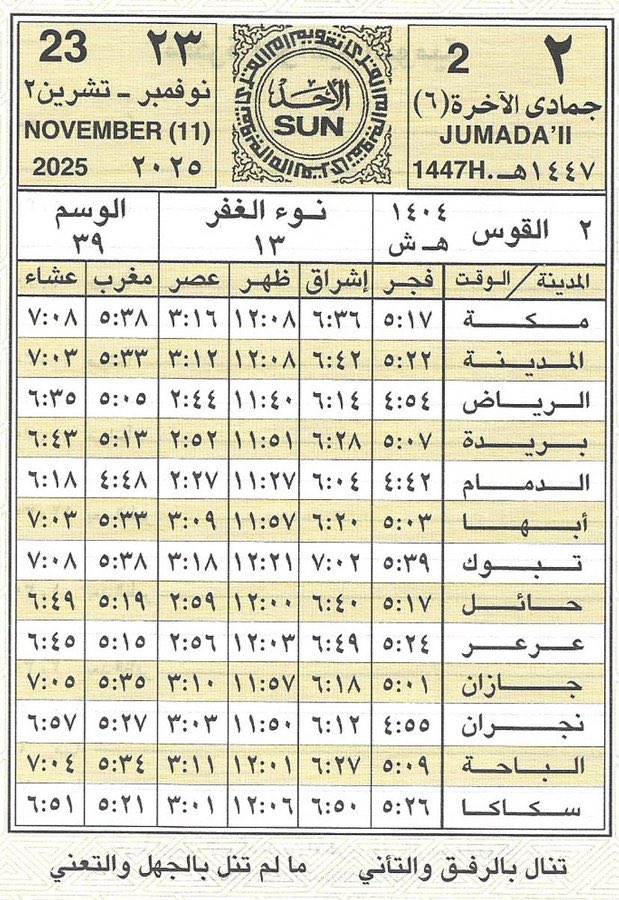 ٢ 2
جمادى الآخرة (٦)
JUMADA'II
1447H. ١٤٤٧هـ
الأحد
SUN
23 ٢٣
نوفمبر - تشرين٢
NOVEMBER (11)
2025 ٢٠٢٥
٢ القوس ١٤٠٤ هـ ش
نوء الغفر ١٣
الوسم ٣٩
المدينة / الوقت فجر إشراق ظهر عصر مغرب عشاء
مكة ٥:١٧ ٦:٣٦ ١٢:٠٨ ٣:١٦ ٥:٣٨ ٧:٠٨
المدينة ٥:٢٢ ٦:٤٢ ١٢:٠٨ ٣:١٢ ٥:٣٣ ٧:٠٣
الرياض ٤:٥٤ ٦:١٤ ١١:٤٠ ٢:٤٤ ٥:٠٥ ٦:٣٥
بريدة ٥:٠٧ ٦:٢٨ ١١:٥١ ٢:٥٢ ٥:١٣ ٦:٤٣
الدمام ٤:٤٢ ٦:٠٤ ١١:٢٧ ٢:٢٧ ٤:٤٨ ٦:١٨
أبها ٥:٠٣ ٦:٢٠ ١١:٥٧ ٣:٠٩ ٥:٣٣ ٧:٠٣
تبوك ٥:٣٩ ٧:٠٢ ١٢:٢١ ٣:١٨ ٥:٣٨ ٧:٠٨
حائل ٥:١٧ ٦:٤٠ ١٢:٠٠ ٢:٥٩ ٥:١٩ ٦:٤٩
عرعر ٥:٢٤ ٦:٤٩ ١٢:٠٣ ٢:٥٦ ٥:١٥ ٦:٤٥
جازان ٥:٠١ ٦:١٨ ١١:٥٧ ٣:١٠ ٥:٣٥ ٧:٠٥
نجران ٤:٥٥ ٦:١٢ ١١:٥٠ ٣:٠٣ ٥:٢٧ ٦:٥٧
الباحة ٥:٠٩ ٦:٢٧ ١٢:٠١ ٣:١١ ٥:٣٤ ٧:٠٤
سكاكا ٥:٢٦ ٦:٥٠ ١٢:٠٦ ٣:٠١ ٥:٢١ ٦:٥١
تنال بالرفق والتأني ما لم تنل بالجهل والتعني